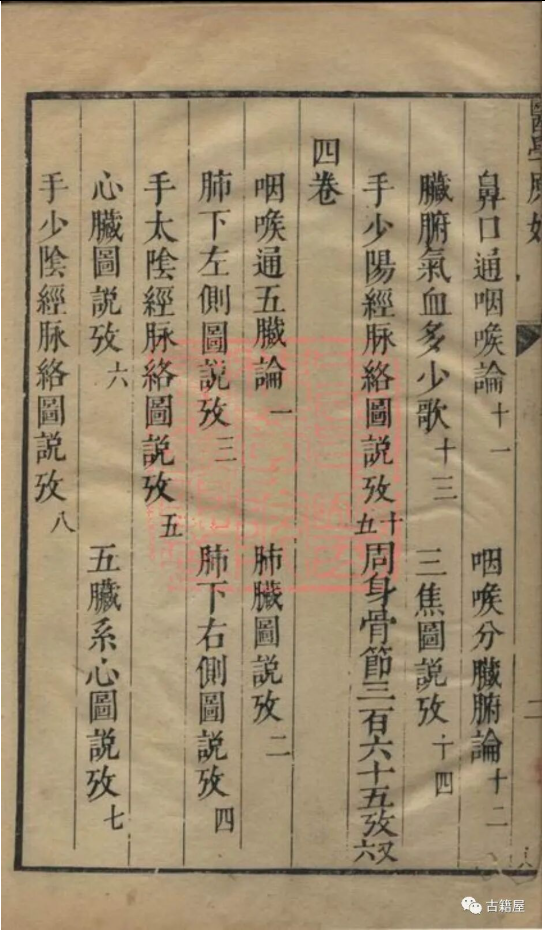 鼻口通咽喉論十一 咽喉分臟腑論十二
臟腑氣血多少歌十三 三焦圖説攷十四
手少陽經脉絡圖説攷十五 周身骨節三百六十五攷又六
四卷
咽喉通五臟論一 肺臟圖説攷二
肺下左側圖説攷三 肺下右側圖説攷四
手太陰經脉絡圖説攷五
心臟圖説攷六 五臟系心圖説攷七
手少陰經脉絡圖説攷八
古籍屋